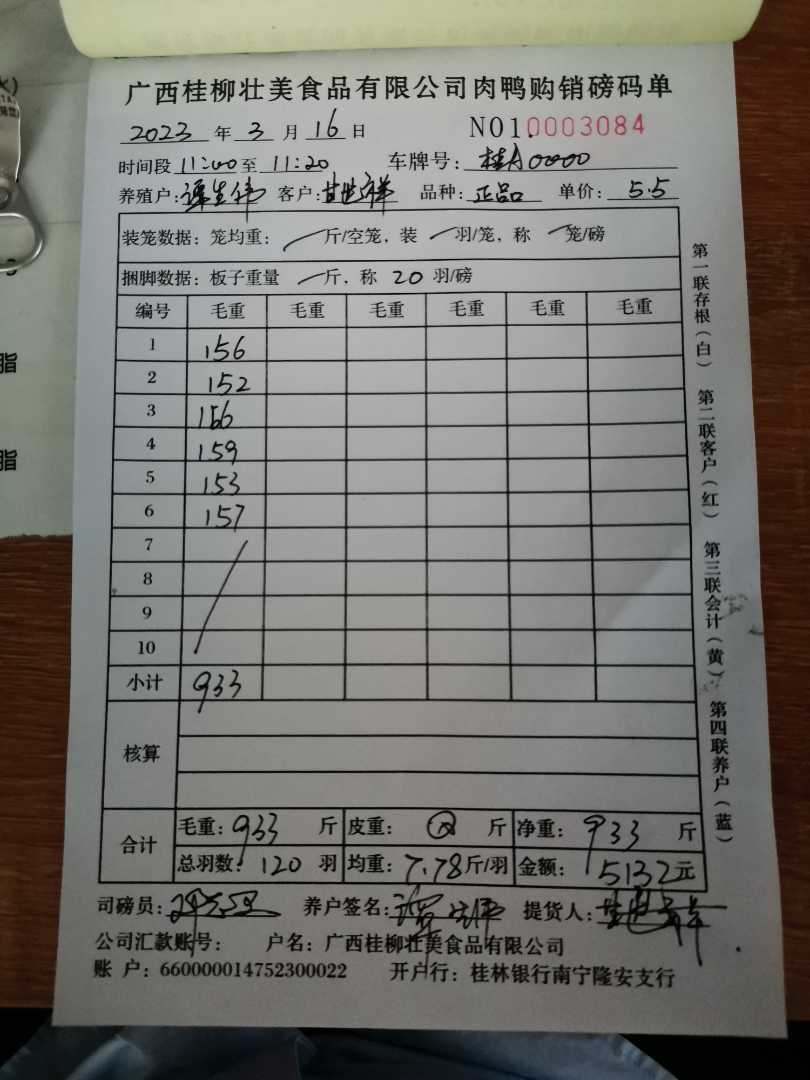 广西桂柳壮美食品有限公司肉鸭购销磅码单
2023 年 3 月 16 日 NO1.0003084
时间段 11:00 至 11:20 车牌号: 桂A0000
养殖户: 谭生伟 客户: 甘世祥 品种: 正品 单价: 5.5
装笼数据: 笼均重: 斤/空笼, 装 羽/笼, 称 笼/磅
捆脚数据: 板子重量 斤, 称 20 羽/磅
编号 毛重 毛重 毛重 毛重 毛重 毛重
1 156
2 152
3 156
4 159
5 153
6 157
7
8
9
10
小计 933
核算
合计 毛重: 933 斤 皮重: 斤 净重: 933 斤
总羽数: 120 羽 均重: 7.78 斤/羽 金额: 5132 元
司磅员: 养户签名: 提货人:
公司汇款账号: 户名: 广西桂柳壮美食品有限公司
账 户: 660000014752300022 开户行: 桂林银行南宁隆安支行
第一联存根(白) 第二联客户(红) 第三联会计(黄) 第四联养户(蓝)
脂
脂